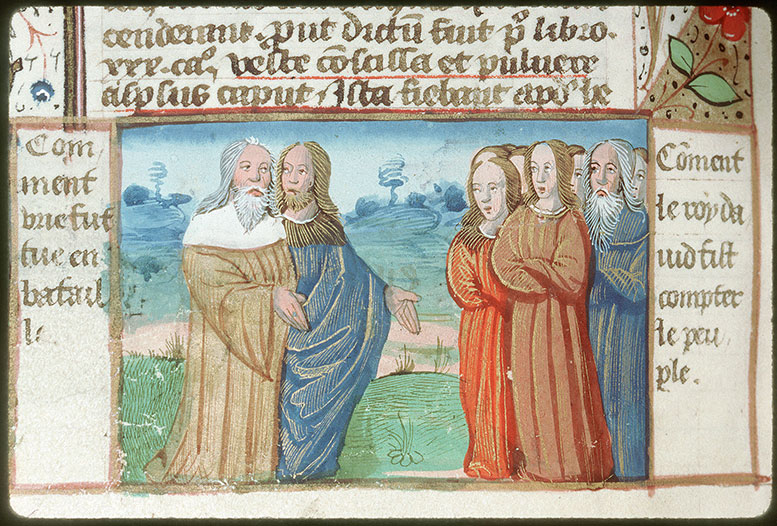 cenderant. put dictũ fuit p̃ libro.
xxx. caº. veste cõscissa et puluere
aspsus caput. Ista fiebant apº le
Com
ment
vrie fut
tue en
batail
le
Cõment
le roy da
uid fist
compter
le peu
ple.